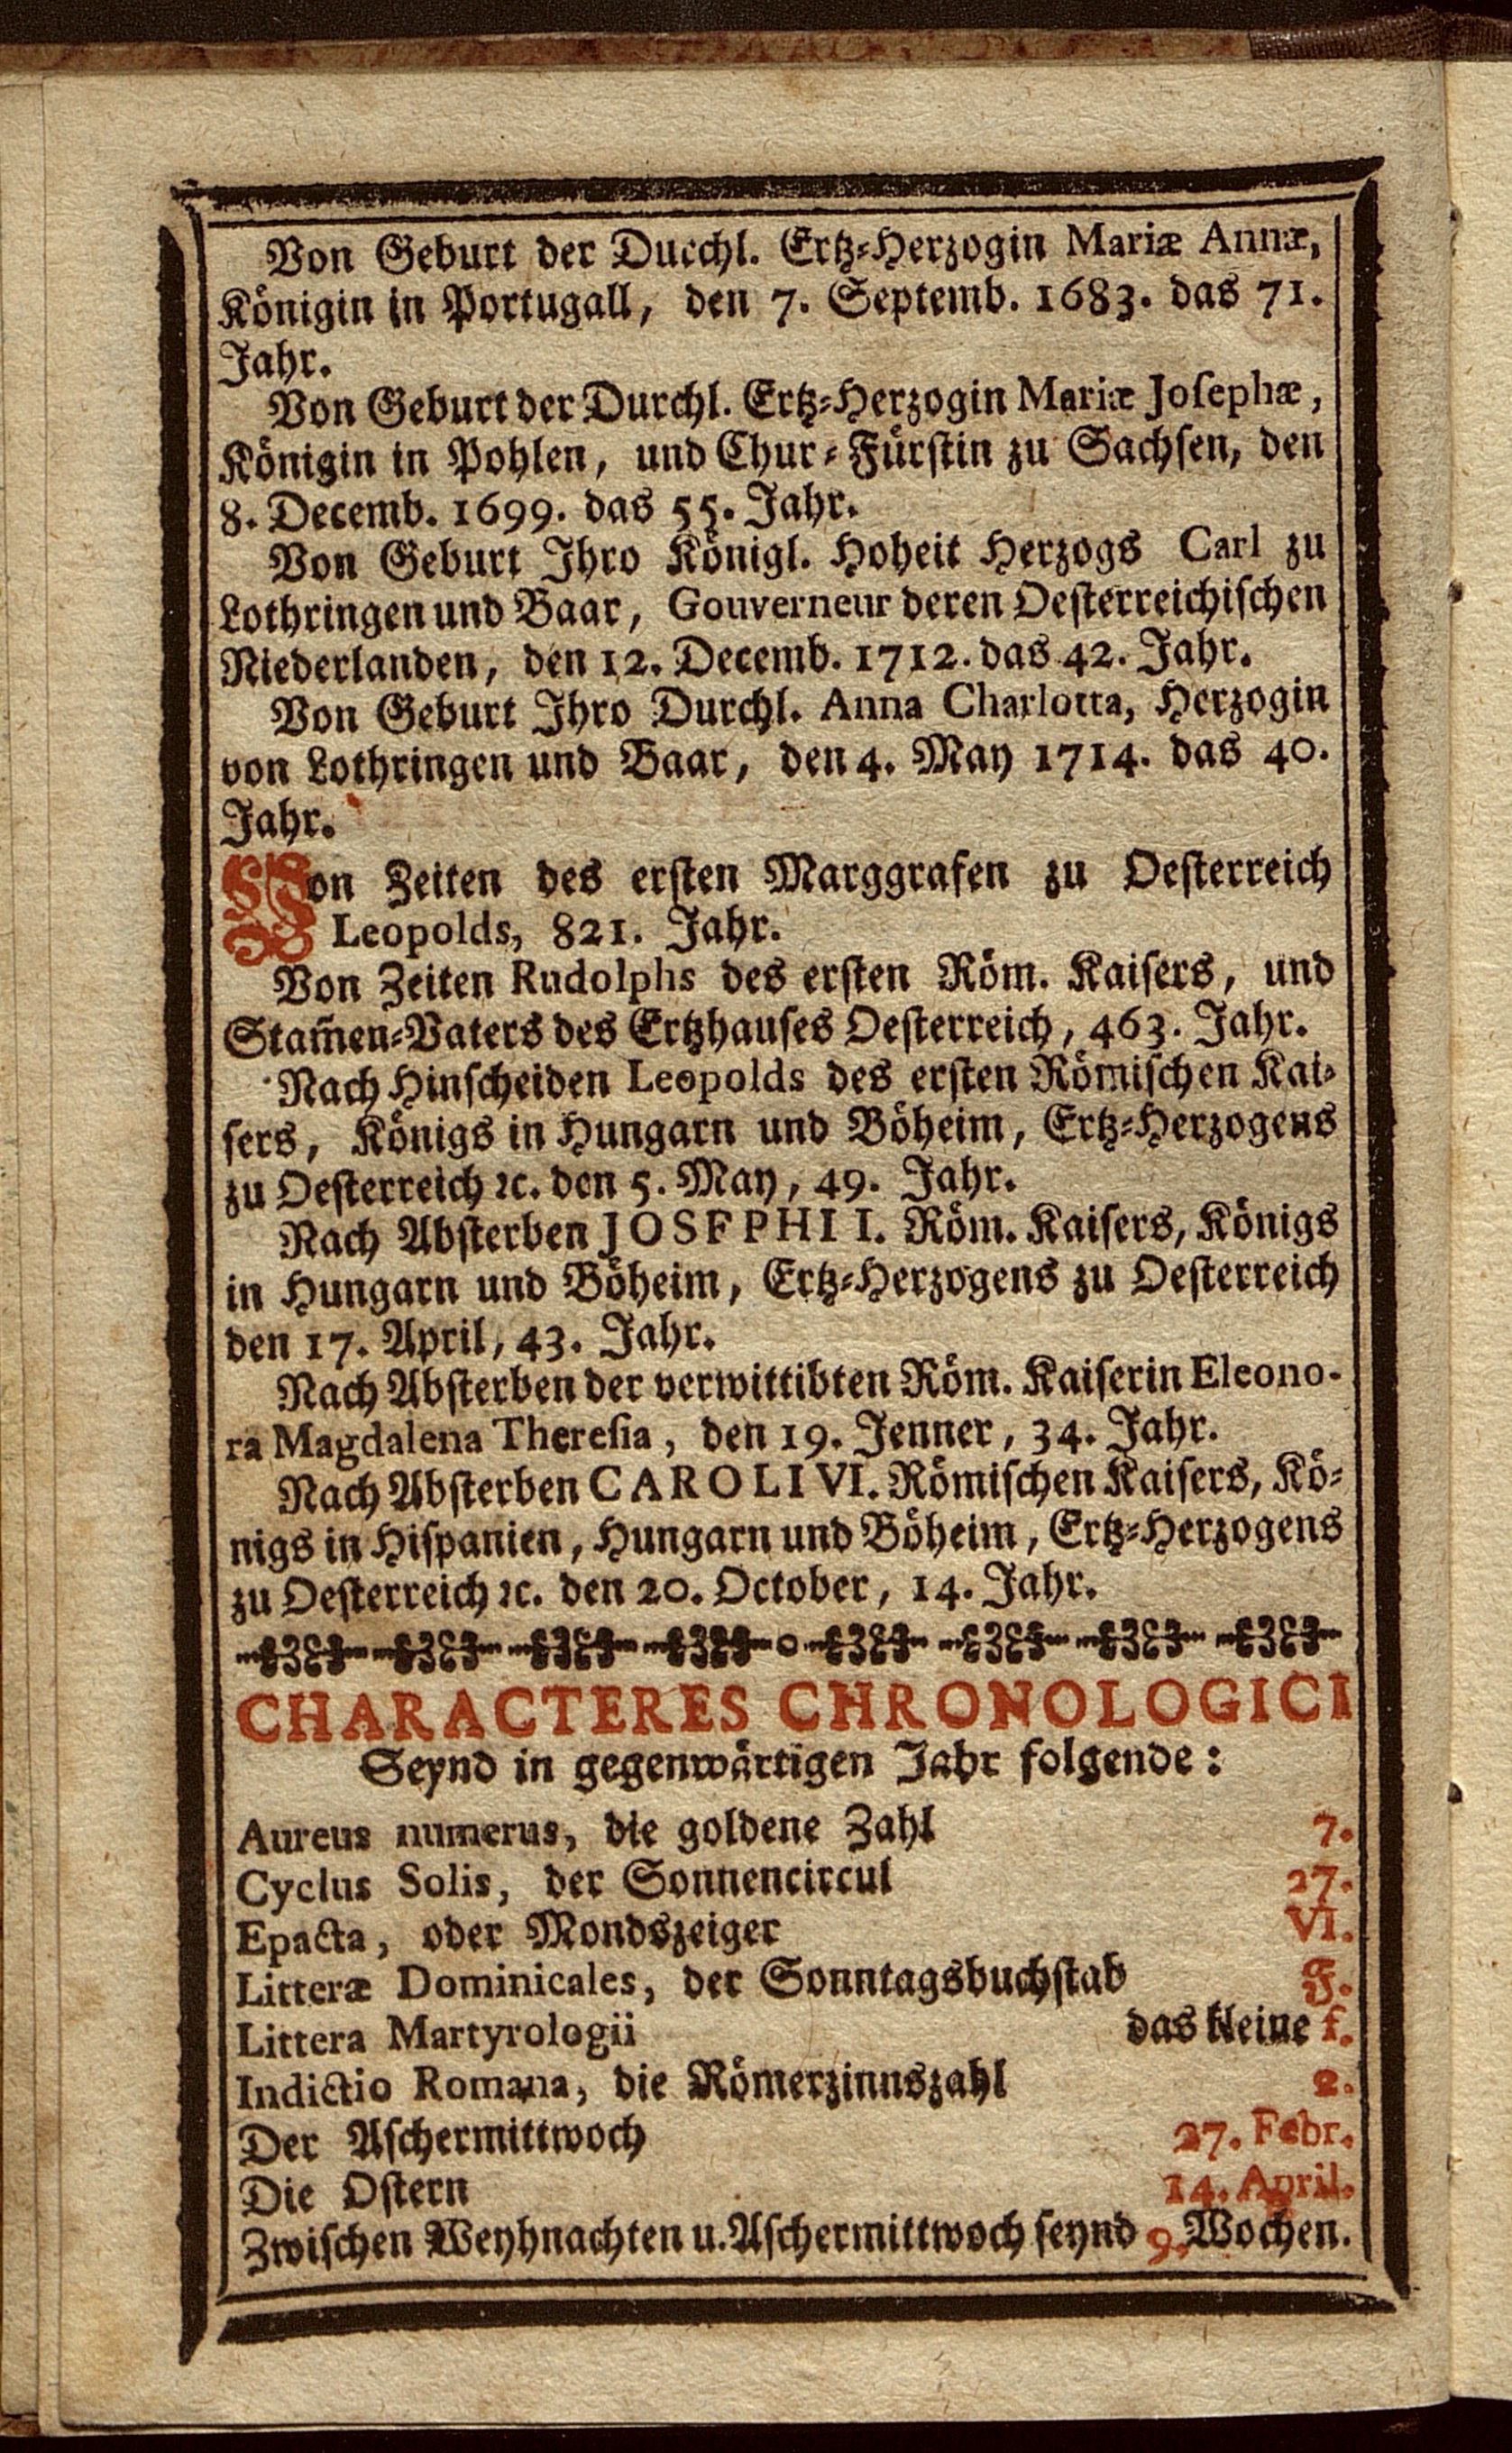 Von Geburt der Ducchl. Ertz-Herzogin Mariæ Annæ,
Königin in Portugall, den 7. Septemb. 1683. das 71.
Jahr.
Von Geburt der Durchl. Ertz-Herzogin Mariæ Josephæ,
Königin in Pohlen, und Chur-Fürstin zu Sachsen, den
8. Decemb. 1699. das 55. Jahr.
Von Geburt Ihro Königl. Hoheit Herzogs Carl zu
Lothringen und Baar, Gouverneur deren Oesterreichischen
Niederlanden, den 12. Decemb. 1712. das 42. Jahr.
Von Geburt Ihro Durchl. Anna Charlotta, Herzogin
von Lothringen und Baar, den 4. May 1714. das 40.
Jahr.
Von Zeiten des ersten Marggrafen zu Oesterreich
Leopolds, 821. Jahr.
Von Zeiten Rudolphs des ersten Röm. Kaisers, und
Stam̃en-Vaters des Ertzhauses Oesterreich, 463. Jahr.
Nach Hinscheiden Leopolds des ersten Römischen Kai-
sers, Königs in Hungarn und Böheim, Ertz-Herzogens
zu Oesterreich ꝛc. den 5. May, 49. Jahr.
Nach Absterben JOSFPHI I. Röm. Kaisers, Königs
in Hungarn und Böheim, Ertz-Herzogens zu Oesterreich
den 17. April, 43. Jahr.
Nach Absterben der verwittibten Röm. Kaiserin Eleono-
ra Magdalena Theresia, den 19. Jenner, 34. Jahr.
Nach Absterben CAROLI VI. Römischen Kaisers, Kö-
nigs in Hispanien, Hungarn und Böheim, Ertz-Herzogens
zu Oesterreich ꝛc. den 20. October, 14. Jahr.
CHARACTERES CHRONOLOGICI
Seynd in gegenwärtigen Jahr folgende:
Aureus numerus, die goldene Zahl 7.
Cyclus Solis, der Sonnencircul 27.
Epacta, oder Mondszeiger VI.
Litteræ Dominicales, der Sonntagsbuchstab F.
Littera Martyrologii das kleine f.
Indictio Romana, die Römerzinnszahl 2.
Der Aschermittwoch 27. Febr.
Die Ostern 14. April.
Zwischen Weyhnachten u. Aschermittwoch seynd 9. Wochen.